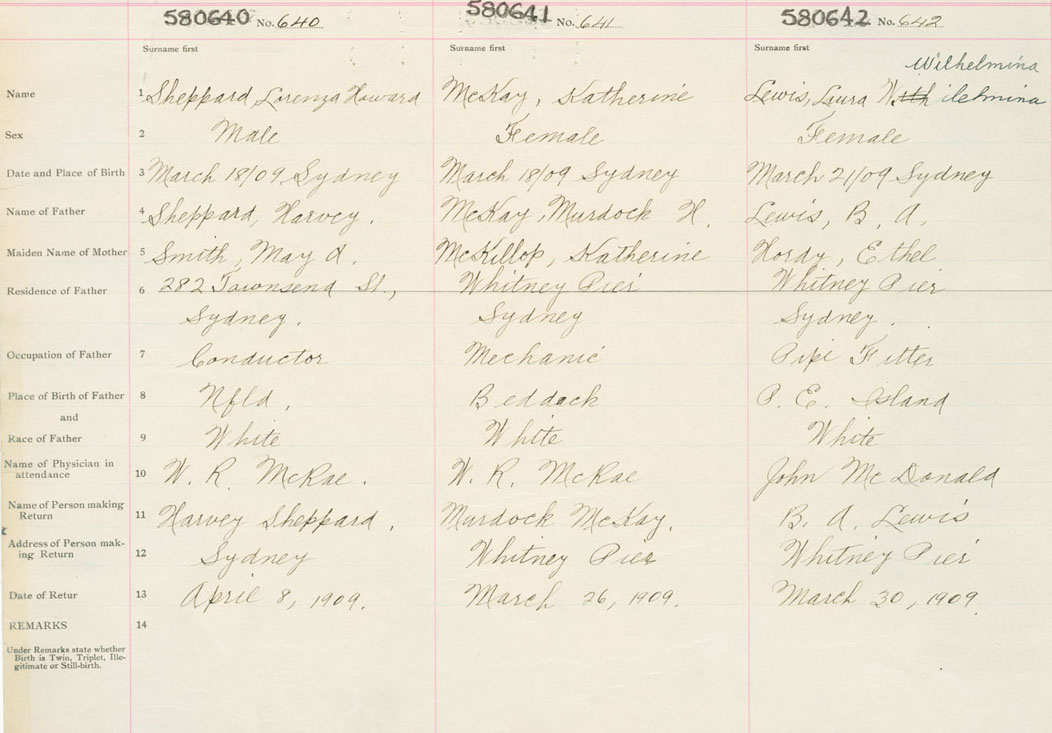 580640 No. 640 580641 No. 641 580642 No. 642
Surname first Surname first Surname first
Wilhelmina
Name 1 Sheppard, Lorenza Howard McKay, Katherine Lewis, Laura Wilelmina
Sex 2 Male Female Female
Date and Place of Birth 3 March 18/09 Sydney March 18/09 Sydney March 21/09 Sydney
Name of Father 4 Sheppard, Harvey. McKay, Murdock H. Lewis, B. A.
Maiden Name of Mother 5 Smith, May A. McKillop, Katherine Hordy, Ethel
Residence of Father 6 282 Townsend St., Whitney Pier Whitney Pier
Sydney. Sydney Sydney.
Occupation of Father 7 Conductor Mechanic Pipe Fitter
Place of Birth of Father 8 Nfld. Beddack P. E. Island
and
Race of Father 9 White White White
Name of Physician in
attendance 10 W. R. McRae. W. R. McRae John McDonald
Name of Person making
Return 11 Harvey Sheppard. Murdock McKay. B. A. Lewis
Address of Person mak-
ing Return 12 Sydney Whitney Pier Whitney Pier
Date of Retur 13 April 8, 1909. March 26, 1909. March 30, 1909.
REMARKS 14
Under Remarks state whether
Birth is Twin, Triplet, Ille-
gitimate or Still-birth.